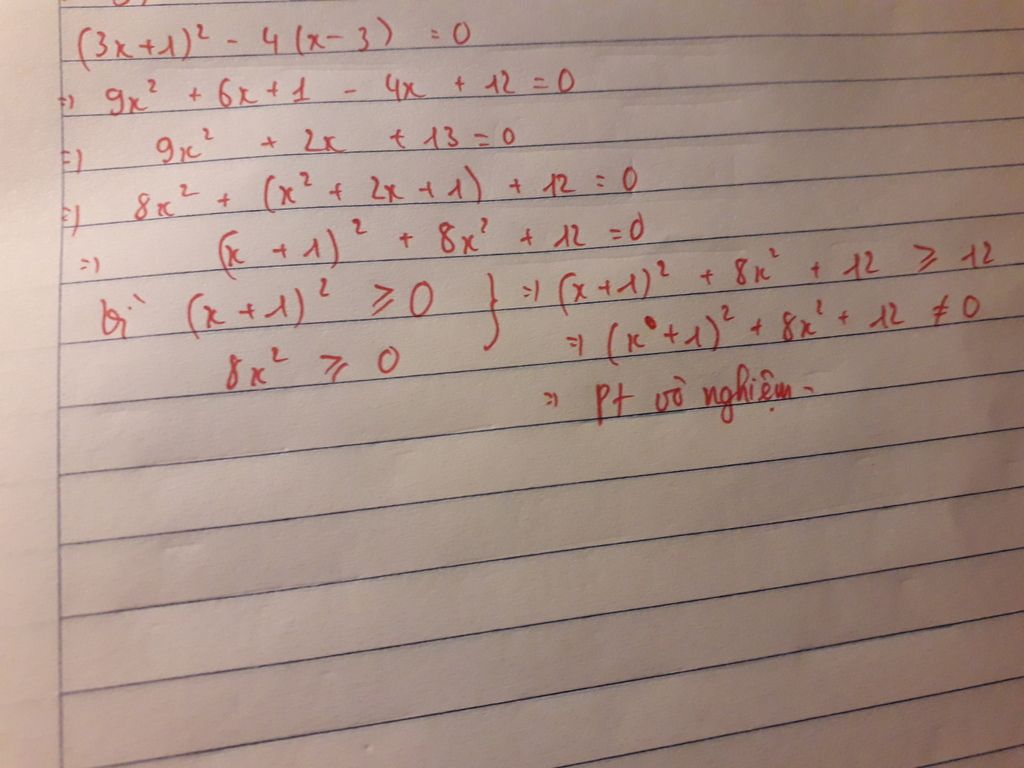 (3x+1)² - 4(x-3) = 0
=) 9x² + 6x+1 - 4x + 12 = 0
=) 9x² + 2x + 13 = 0
=) 8x² + (x² + 2x + 1) + 12 = 0
=) (x + 1)² + 8x² + 12 = 0
Vì (x+1)² ≥ 0 } =) (x+1)² + 8x² + 12 ≥ 12
8x² ≥ 0 =) (x+1)² + 8x² + 12 ≠ 0
=) Pt vô nghiệm.